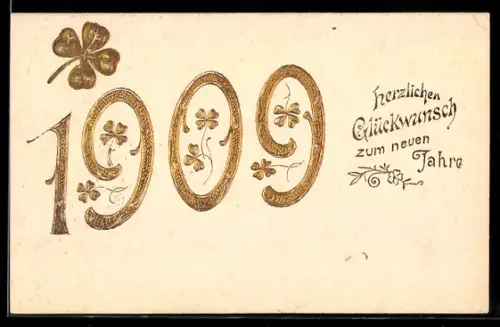 1909
herzlichen
Glückwunsch
zum neuen
Jahre